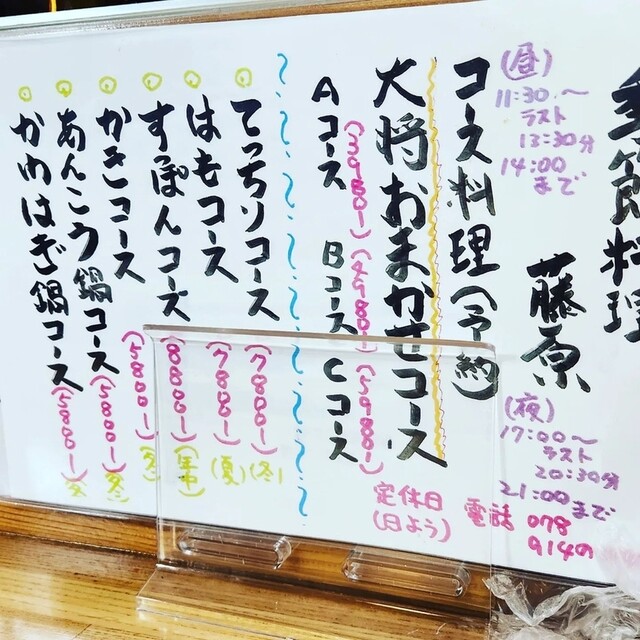 季節料理
藤原
(昼)
11:30〜
ラスト
13:30分
14:00
まで
(夜)
17:00〜
ラスト
20:30分
21:00まで
コース料理(予約)
大将おまかせコース
Aコース(3980-)
Bコース(4980-)
Cコース(5980-)
てっちりコース(7800-)(冬)
はもコース(7800-)(夏)
すっぽんコース(8800-)
かきコース(5800-)(冬)
あんこう鍋コース(5800-)(冬)
かわはぎ鍋コース(5800-)冬
定休日
(日よう)
電話 078
914の